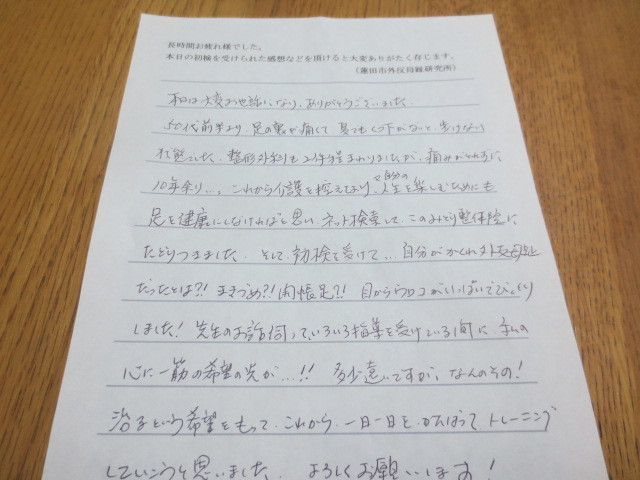 長時間お疲れ様でした。
本日の初検を受けられた感想などを頂けると大変ありがたく存じます。
(蓮田市外反母趾研究所)
本日は大変お世話になり、ありがとうございました。
50代前半より、足の裏が痛くて、真っ直ぐ歩けない
状態でした。整形外科も2件程まわりましたが、痛みがとれずに
10年余り…、これから介護を控えており、自分の人生を楽しむためにも
足を健康にしなければと思い、ネット検索して、このみどり整体院に
たどりつきました。そして、初検を受けて…自分がかくれ外反母趾
だったとは?! 浮きづめ?! 開帳足?! 目からウロコがいっぱいでびっくり
しました! 先生のお話伺って、いろいろ指導を受けている間に私の
心に一筋の希望の光が…!! 多少遠いですが、なんのその!
治るという希望をもって、これから、一日一日を、がんばって、トレーニング
していこうと思いました。よろしくお願いします!